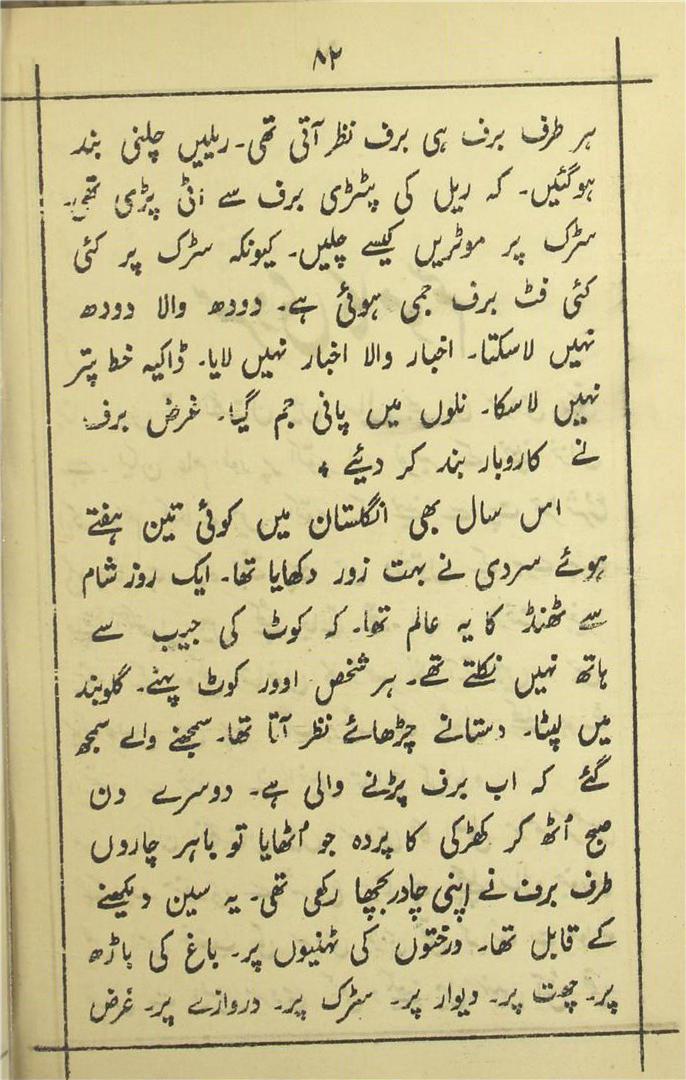 ۸۲
ہر طرف برف ہی برف نظر آتی تھی۔ ریلیں چلنی بند
ہوگئیں۔ کہ ریل کی پٹڑی برف سے اٹی پڑی تھی۔
سڑک پر موٹریں کیسے چلیں۔ کیونکہ سڑک پر کئی
کئی فٹ برف جمی ہوئی ہے۔ دودھ والا دودھ
نہیں لاسکتا۔ اخبار والا اخبار نہیں لایا۔ ڈاکیہ خط پتر
نہیں لاسکا۔ نلوں میں پانی جم گیا۔ غرض برف
نے کاروبار بند کر دیئے +
اس سال بھی انگلستان میں کوئی تین ہفتے
ہوئے سردی نے بہت زور دکھایا تھا۔ ایک روز شام
سے ٹھنڈ کا یہ عالم تھا۔ کہ کوٹ کی جیب سے
ہاتھ نہیں نکلتے تھے۔ ہر شخص اوور کوٹ پہنے۔ گلوبند
میں لپٹا۔ دستانے چڑھائے نظر آتا تھا۔ سمجھنے والے سمجھ
گئے کہ اب برف پڑنے والی ہے۔ دوسرے دن
صبح اُٹھ کر کھڑکی کا پردہ جو اُٹھایا تو باہر چاروں
طرف برف نے اپنی چادر بچھا رکھی تھی۔ یہ سین دیکھنے
کے قابل تھا۔ درختوں کی ٹہنیوں پر۔ باغ کی باڑھ
پر۔ چھت پر۔ دیوار پر۔ سڑک پر۔ دروازے پر۔ غرض